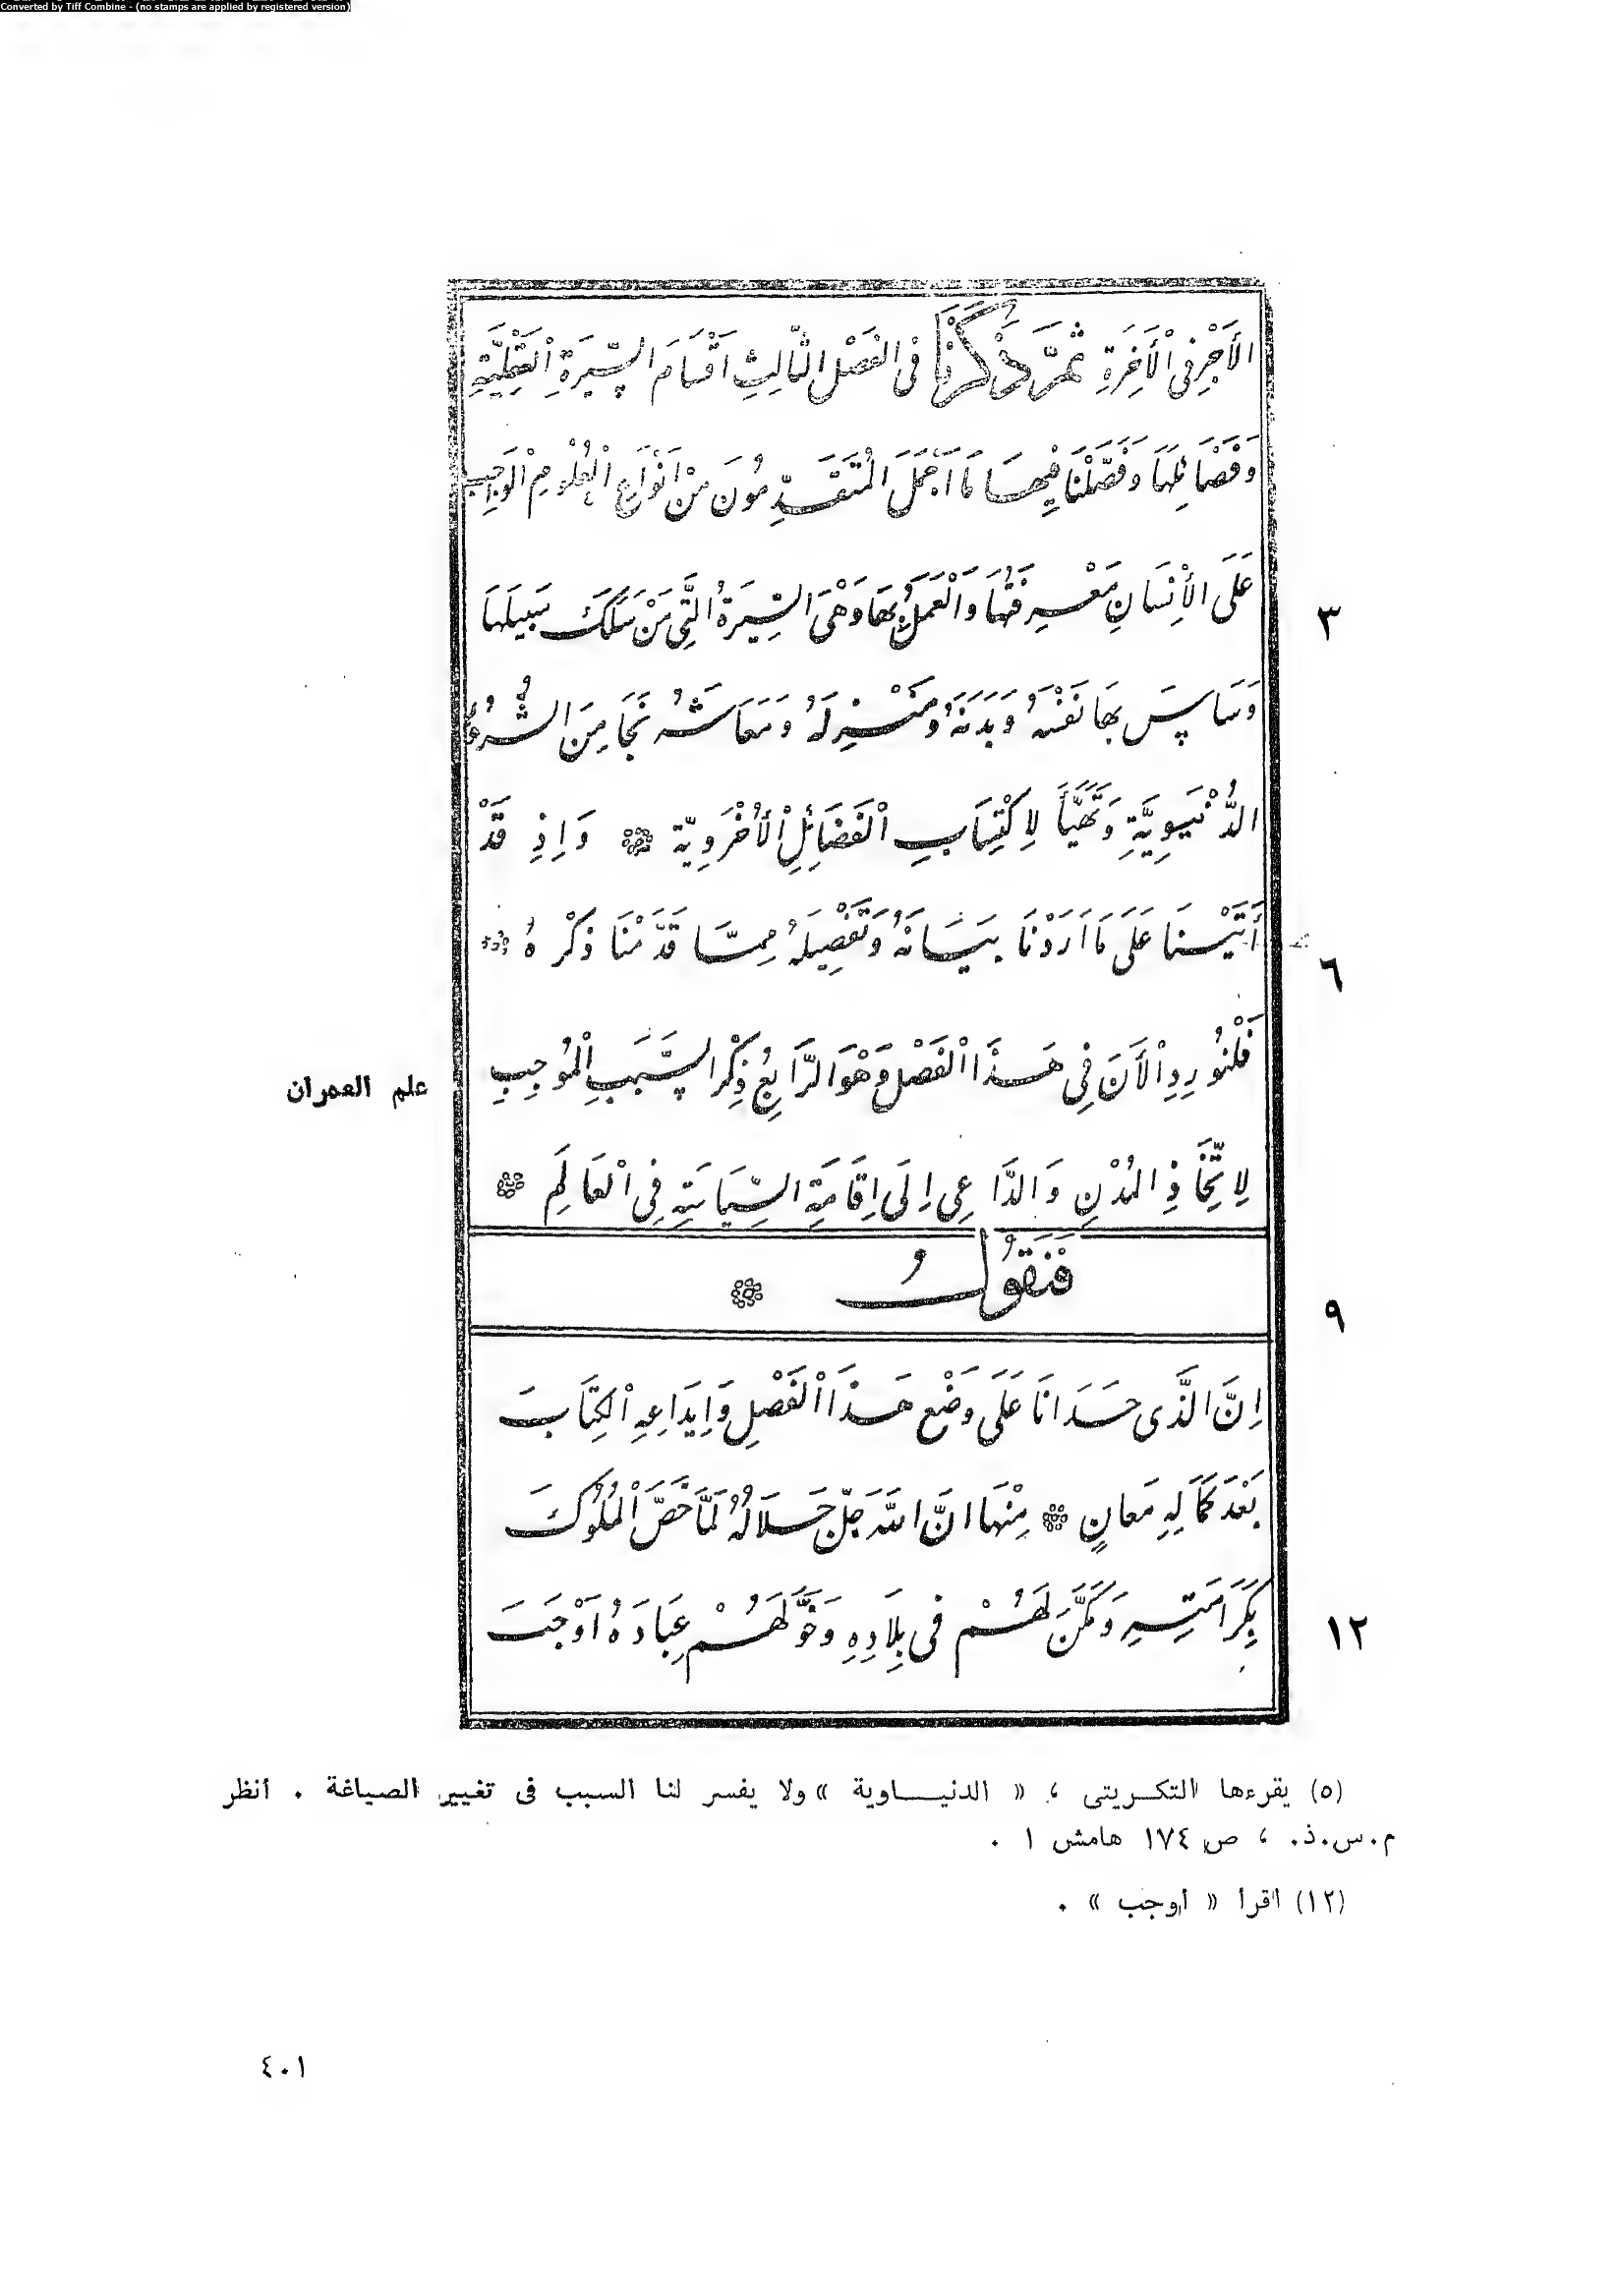 Converted by Tiff Combine - (no stamps are applied by registered version)
الأَجْرِ فِى الْأَخِرَةِ ثُمَّ ذَكَرْنَا فِى الفَصْلِ الثَّالِثِ اَقْسَامَ السِّيْرَةِ الْعَقْلِيَّةِ
وَفَضَائِلَهَا وَفَصَّلْنَا فِيهَا مَا اَجْمَلَ الْمُتَقَدِّمُونَ مِنْ اَنْوَاعِ الْعُلُومِ الْوَاجِبِ
عَلَى الْأِنْسَانِ مَعْرِفَتُهَا وَالْعَمَلُ بِهَا وَهْىَ السِّيْرَةُ الَّتِى مَنْ سَلَكَ سَبِيلَهَا
٣
وَسَاسَ بِهَا نَفْسَهُ وَبَدَنَهُ وَمَنْزِلَهُ وَمَعَاشَهُ نَجَا مِنَ الشُّرُورِ
الدُّنْيَوِيَّةِ وَتَهَيَّأَ لِاكْتِسَابِ الْفَضَائِلِ الْأُخْرَوِيَّة وَاِذِ قَدْ
أَتَيْنَا عَلَى مَا اَرَدْنَا بَيَانَهُ وَتَفْصِيلَهُ مِمَّا قَدَّمْنَا ذِكْرَهُ
٦
فَلْنُورِدِ الْأَنَ فِى هَذَا الْفَصْلِ وَهْوَ الرَّابِعُ ذِكْرَ السَّبَبِ الْمُوجِبِ
علم العمران
لِاِتِّخَاذِ الْمُدْنِ وَالدَّاعِى اِلَى اِقَامَةِ السِّيَاسَةِ فِى الْعَالَمِ
فَنَقُولُ
٩
اِنَّ الَّذِى حَدَانَا عَلَى وَضْعِ هَذَا الْفَصْلِ وَاِيدَاعِهِ الْكِتَابَ
بَعْدَ كَمَالِهِ مَعَانٍ مِنْهَا اَنَّ اللهَ جَلَّ جَلَالُهُ لَمَّا خَصَّ الْمُلُوكَ
بِكَرَامَتِهِ وَمَكَّنَ لَهُمْ فِى بِلَادِهِ وَخَوَّلَهُمْ عِبَادَهُ اَوْجَبَ
١٢
(٥) يقرءها التكريتى ، « الدنياوية » ولا يفسر لنا السبب فى تغيير الصياغة . أنظر
م.س.ذ. ، ص ١٧٤ هامش ١ .
(١٢) اقرأ « أوجب » .
٤٠١